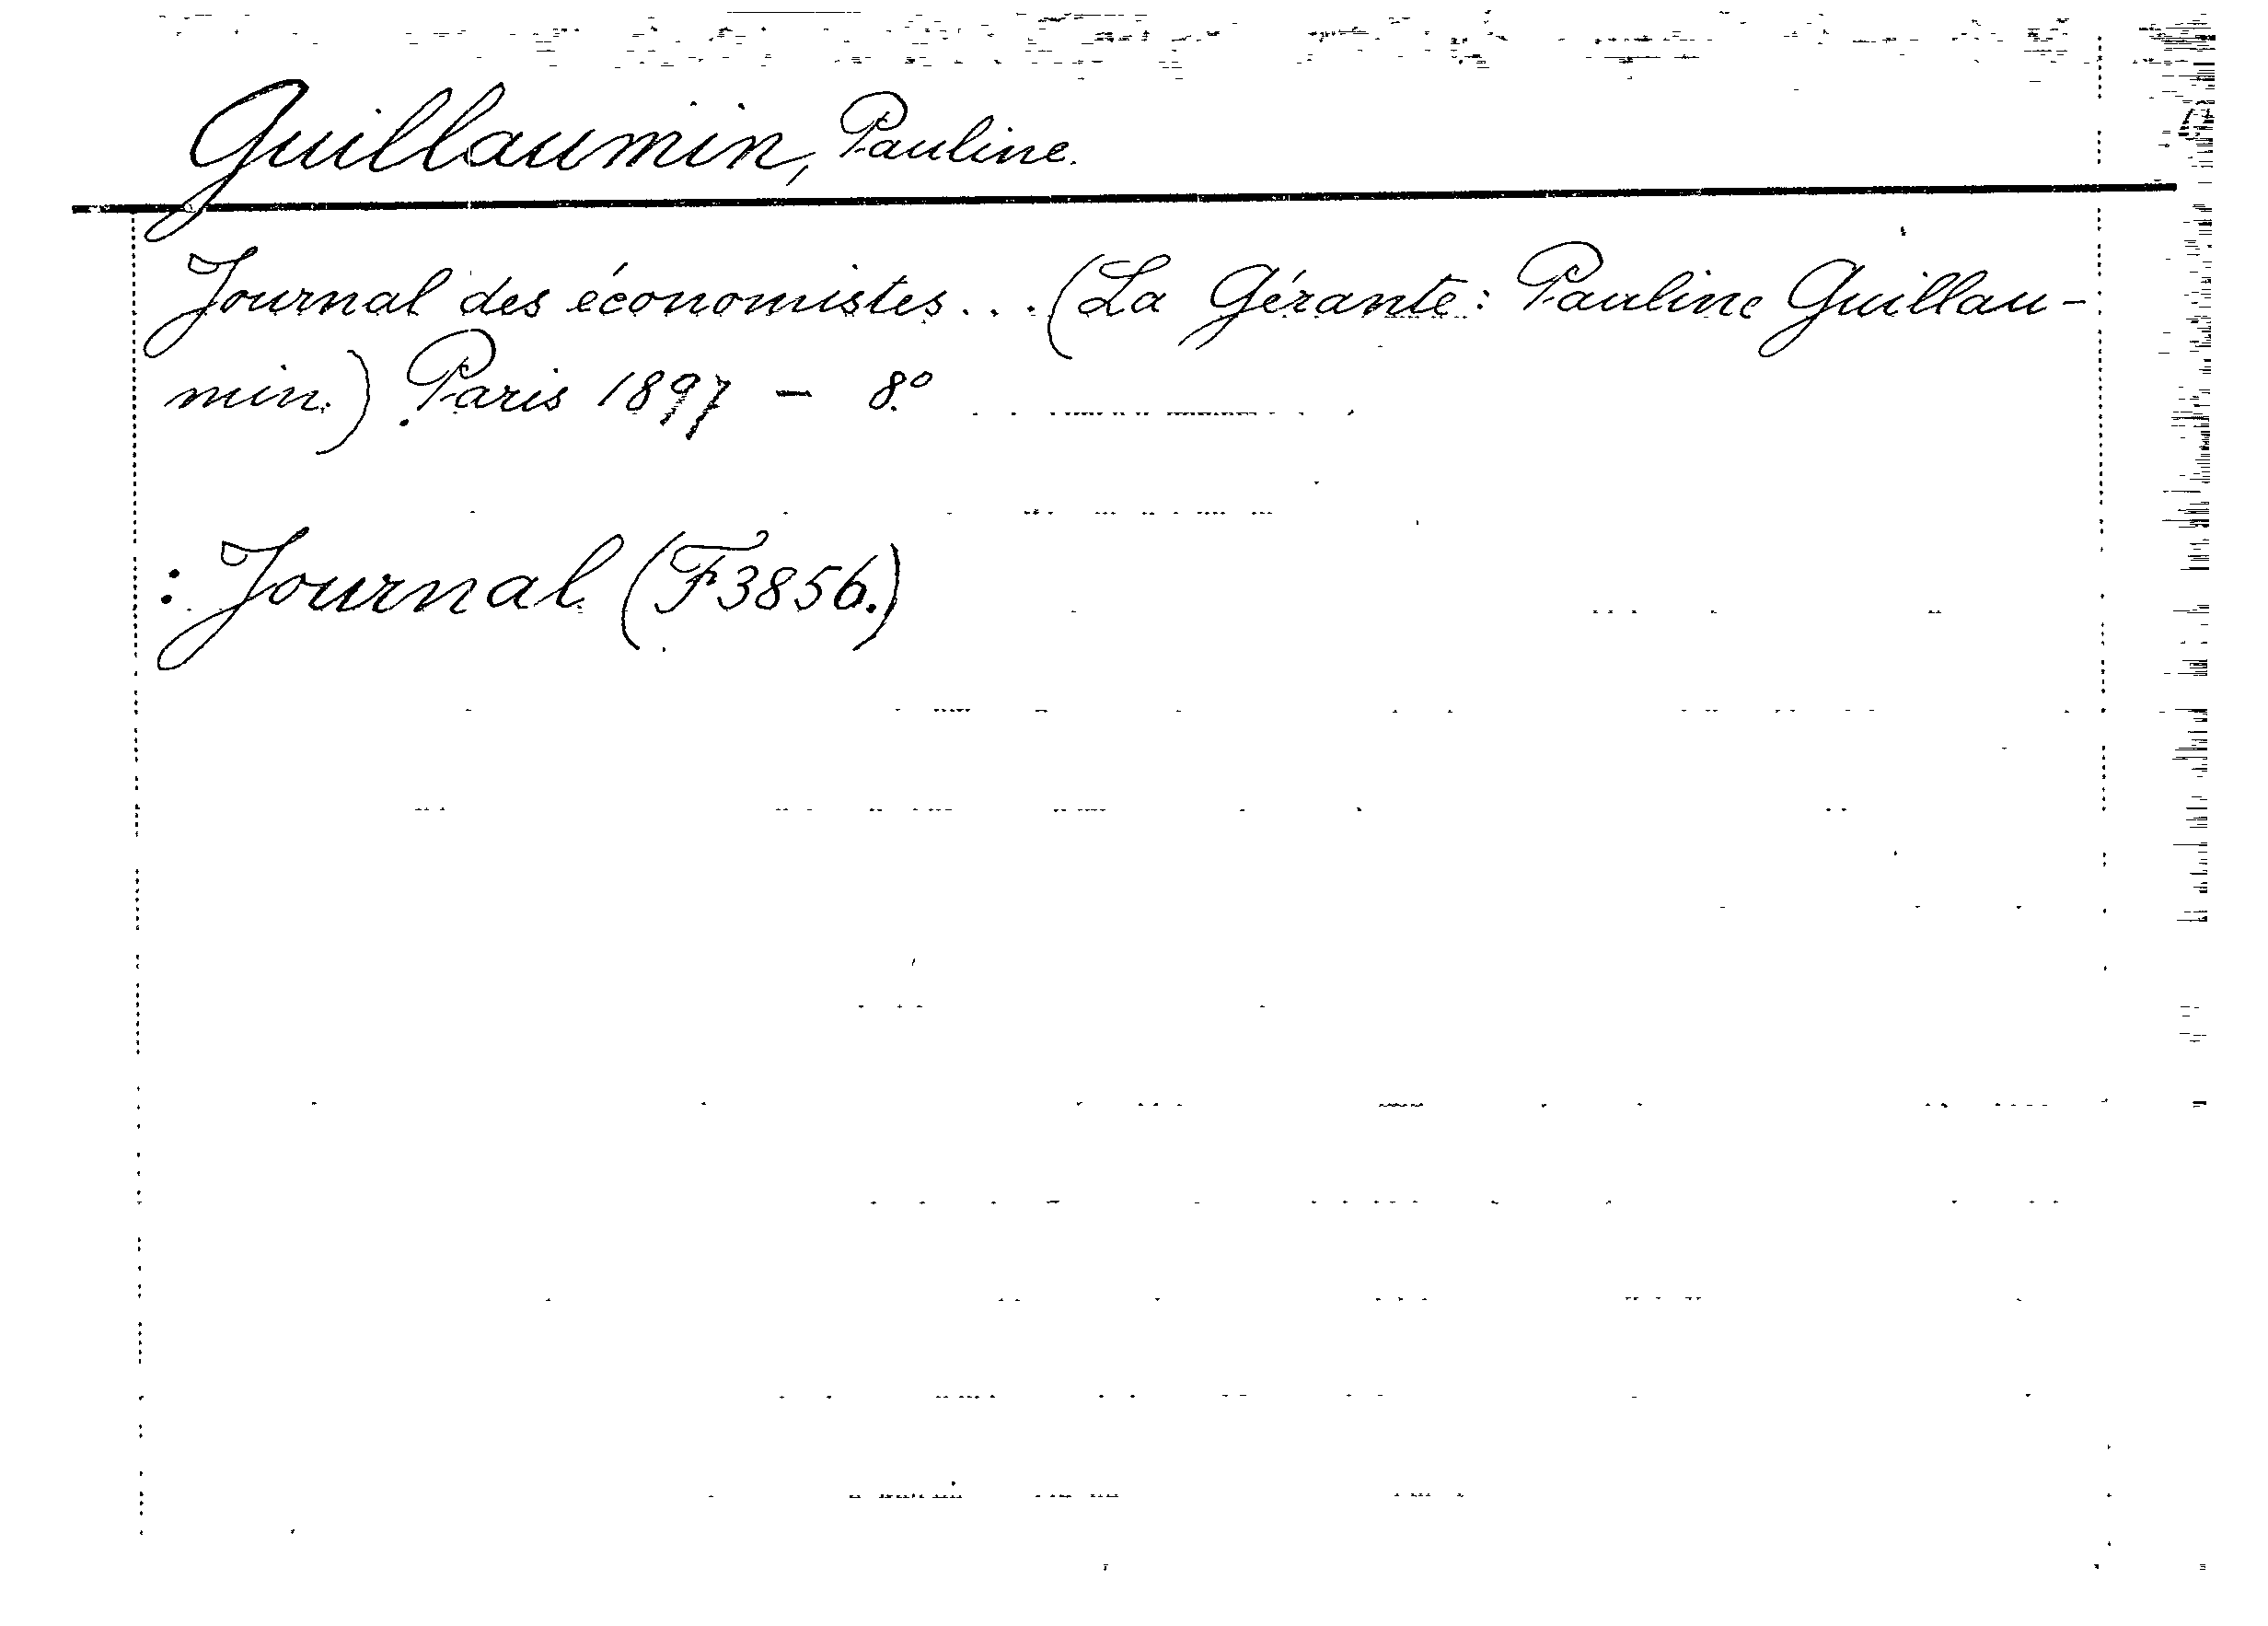 Guillaumin, Pauline.
Journal des économistes... (La Gérante: Pauline Guillau-
min.) Paris 1897 - 8.º
: Journal (F3856.)